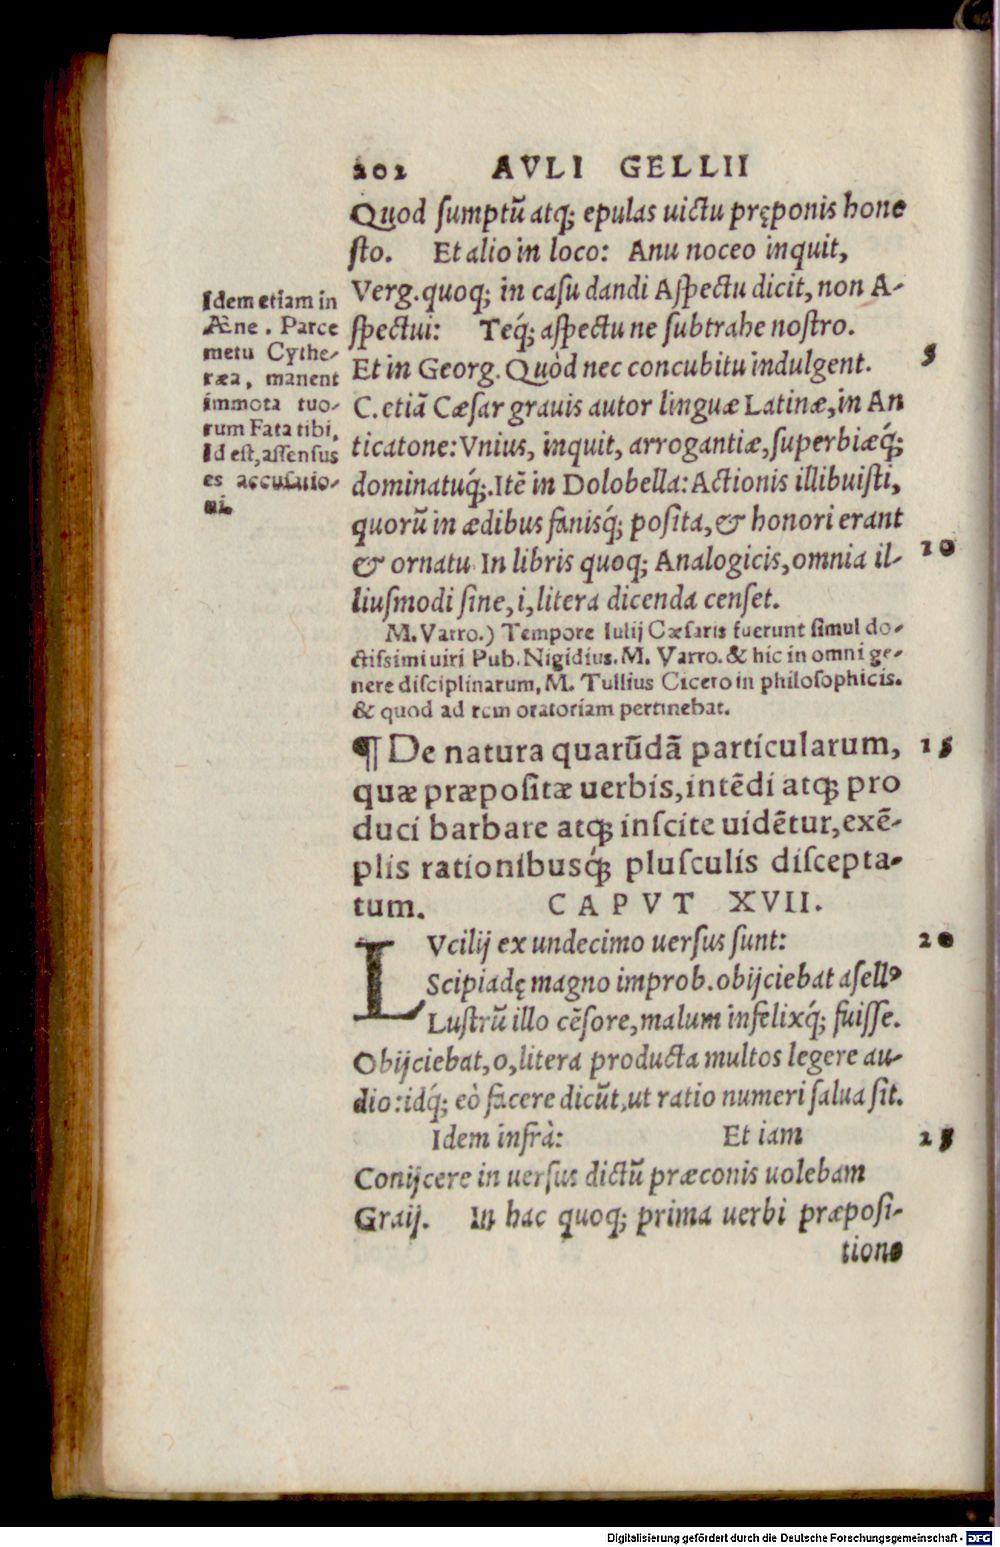 202 AVLI GELLII
Quod sumptũ atq; epulas uictu pręponis hone
sto. Et alio in loco: Anu noceo inquit,
Verg. quoq; in casu dandi Aspectu dicit, non A-
spectui: Teq́; aspectu ne subtrahe nostro.
Et in Georg. Quòd nec concubitu indulgent. 5
C. etiã Cæsar grauis autor linguæ Latinæ, in An
ticatone: Vnius, inquit, arrogantiæ, superbiæq́;
dominatuq́;. Itẽ in Dolobella: Actionis illibuisti,
quorũ in ædibus fanisq́; posita, & honori erant
& ornatu. In libris quoq; Analogicis, omnia il- 10
liusmodi sine, i, litera dicenda censet.
Idem etiam in
Æne. Parce
metu Cythe-
ræa, manent
immota tuo-
rum Fata tibi,
Id est, assensus
es accusatio-
ni.
M. Varro.) Tempore Iulij Cæsaris fuerunt simul do-
ctissimi uiri Pub. Nigidius. M. Varro. & hic in omni ge-
nere disciplinarum, M. Tullius Cicero in philosophicis.
& quod ad rem oratoriam pertinebat.
¶ De natura quarũdã particularum, 15
quæ præpositæ uerbis, intẽdi atq; pro
duci barbare atq; inscite uidẽtur, exẽ-
plis rationibusq́; plusculis discepta-
tum. CAPVT XVII.
LVcilij ex undecimo uersus sunt: 20
Scipiadę magno improb. obijciebat asellꝰ
Lustrũ illo cẽsore, malum infelixq́; fuisse.
Obijciebat, o, litera producta multos legere au-
dio: idq́; eò facere dicũt, ut ratio numeri salua sit.
Idem infrà: Et iam 25
Conijcere in uersus dictũ præconis uolebam
Graij. In hac quoq; prima uerbi præposi-
tione
Digitalisierung gefördert durch die Deutsche Forschungsgemeinschaft - DFG